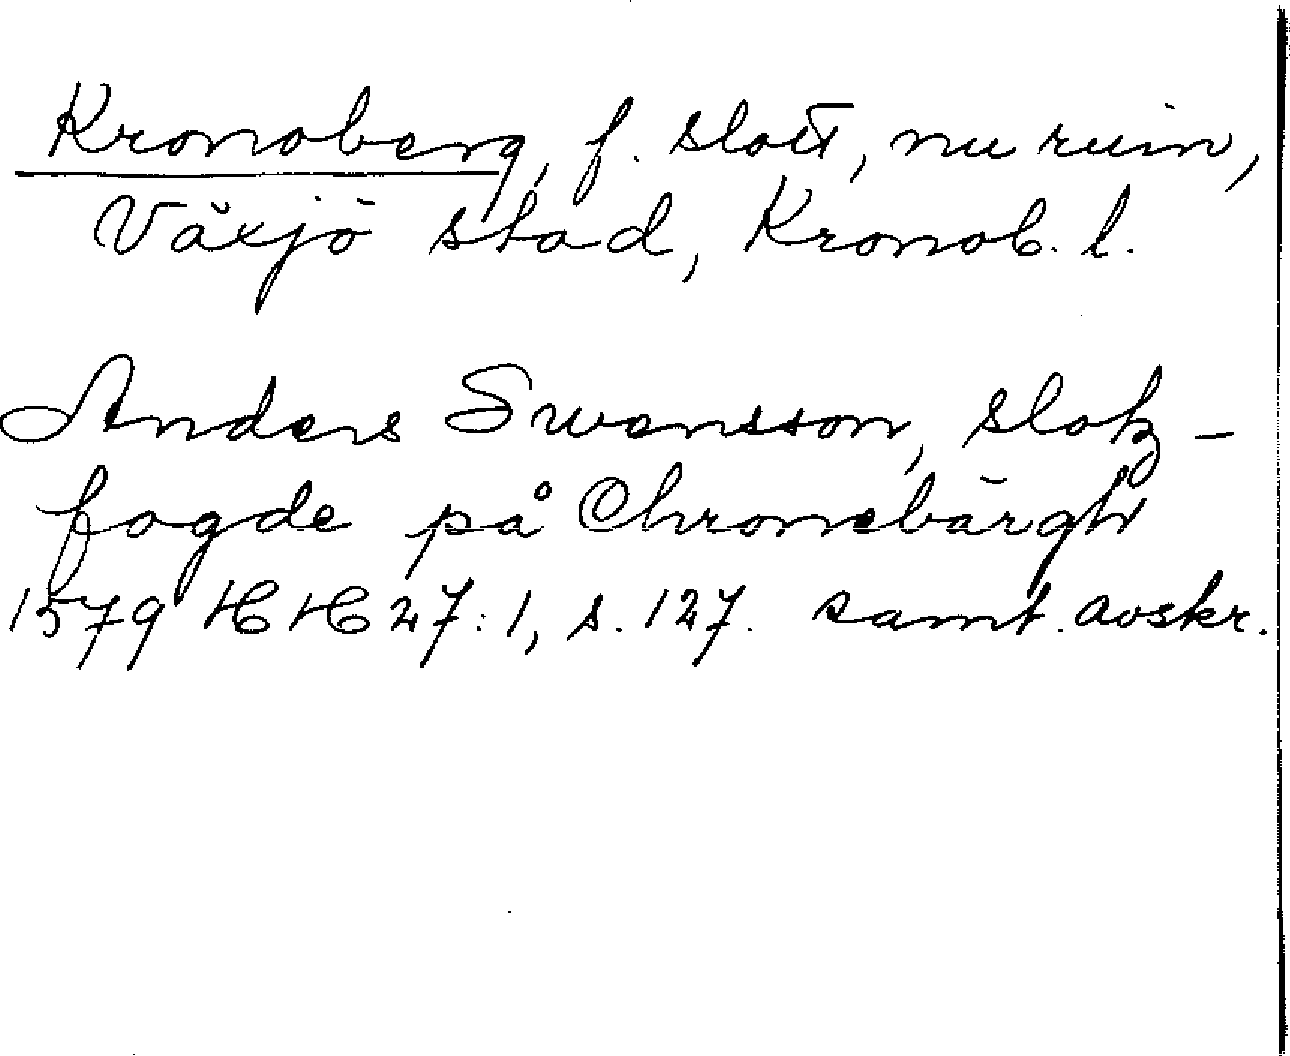 Kronoberg, f. slott, nu ruin,
Växjö stad, Kronob. l.
Anders Swensson, slotz-
fogde på Chronebärgh
1579 HH 27:1, s. 127. samt. avskr.